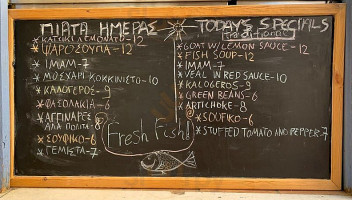 ΠΙΑΤΑ ΗΜΕΡΑΣ
ΚΑΤΣΙΚΙ ΛΕΜΟΝΑΤΟ-12
ΨΑΡΟΣΟΥΠΑ-12
ΙΜΑΜ-7
ΜΟΣΧΑΡΙ ΚΟΚΚΙΝΙΣΤΟ-10
ΚΑΛΟΓΕΡΟΣ-9
ΦΑΣΟΛΑΚΙΑ-6
ΑΓΓΙΝΑΡΕΣ
ΑΛΑ ΠΟΛΙΤΑ-8
ΣΟΥΦΙΚΟ-6
ΓΕΜΙΣΤΑ-7
Fresh Fish!
TODAY'S SPECIALS
traditional
GOAT W/LEMON SAUCE-12
FISH SOUP-12
IMAM-7
VEAL IN RED SAUCE-10
KALOGEROS-9
GREEN BEANS-6
ARTICHOKE-8
SOUFIKO-6
STUFFED TOMATO AND PEPPER-7